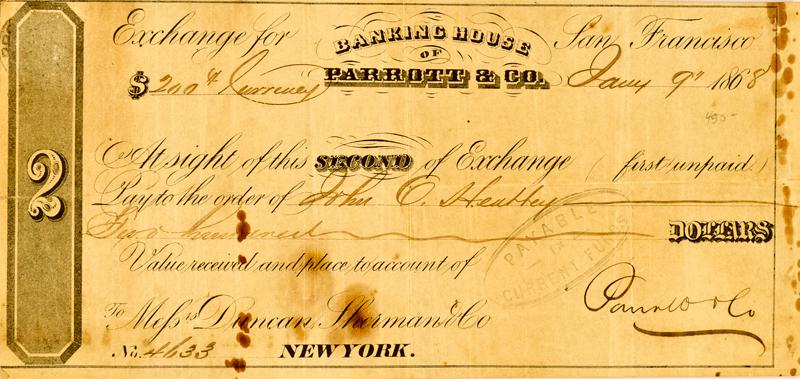 Exchange for BANKING HOUSE OF PARROTT & CO. San Francisco
$200 00/ Currency Jany 9th 1868
450-
2
At sight of this SECOND of Exchange (first unpaid)
Pay to the order of John C.
Two hundred DOLLARS
PAYABLE IN CURRENT FUNDS
Value received and place to account of
To Messrs Duncan, Sherman & Co
Parrott & Co
No. 4633 NEW YORK.